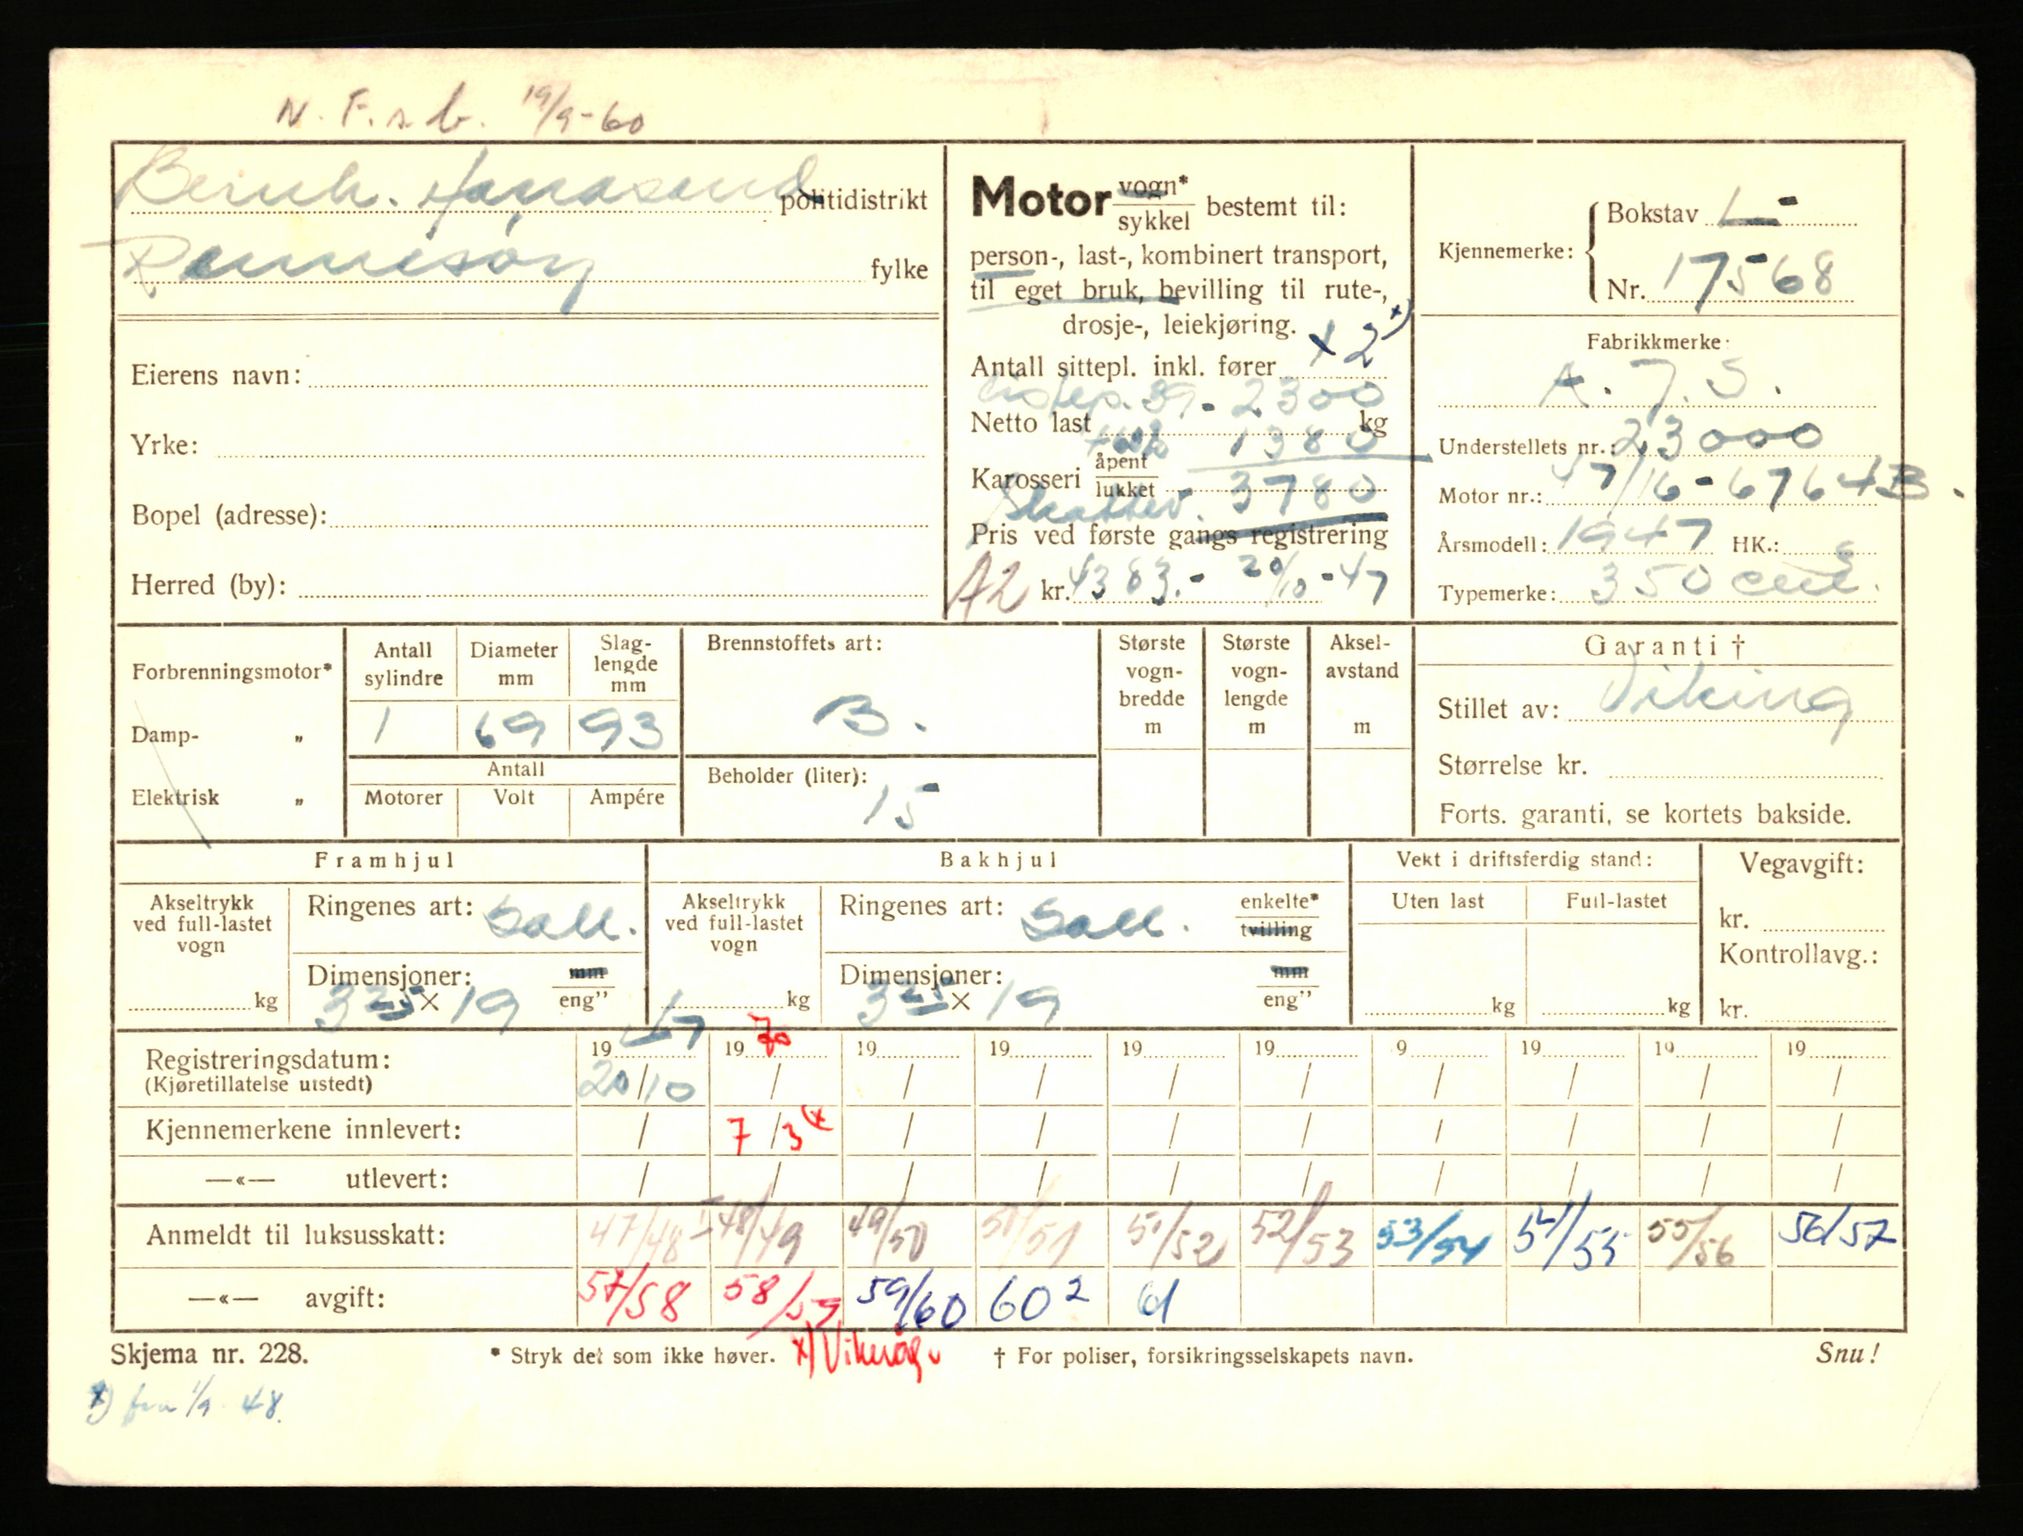 N. F. s. b. 19/9-60
Bernh. politidistrikt
Rennesøy fylke
Eierens navn:
Yrke:
Bopel (adresse):
Herred (by):
Motor vogn* sykkel bestemt til:
person-, last-, kombinert transport,
til eget bruk, bevilling til rute-,
drosje-, leiekjøring.
Antall sittepl. inkl. fører + 2 x)
39 - 2300
Netto last kg
1380
Karosseri åpent lukket
Skattev. 3780
Pris ved første gangs registrering
A2 kr. 4383.- 20/10-47
Kjennemerke: Bokstav L-
Nr. 17568
Fabrikkmerke:
A. J. S.
Understellets nr.: 23000
Motor nr.: 47/16-6764B.
Årsmodell: 1947 HK.:
Typemerke: 350 cm3.
Forbrenningsmotor*
Damp- „
Elektrisk „
Antall sylindre
Diameter mm
Slag- lengde mm
1 69 93
Antall
Motorer Volt Ampére
Brennstoffets art:
B.
Beholder (liter):
15
Største vogn- bredde m
Største vogn- lengde m
Aksel- avstand m
Garanti †
Stillet av: Viking
Størrelse kr.
Forts. garanti, se kortets bakside.
Framhjul
Akseltrykk ved full-lastet vogn
kg
Ringenes art: Ball.
Dimensjoner: mm eng”
3 25 x 19
Bakhjul
Akseltrykk ved full-lastet vogn
kg
Ringenes art: Ball. enkelte* tvilling
Dimensjoner: mm eng”
3 25 x 19
Vekt i driftsferdig stand:
Uten last Full-lastet
kg kg
Vegavgift:
kr.
Kontrollavg.:
kr.
Registreringsdatum: 19 47 19 70 19 19 19 19 9 19 19 19
(Kjøretillatelse utstedt) 20/10 / / / / / / / / /
Kjennemerkene innlevert: / 7/3 x / / / / / / / /
—«— utlevert: / / / / / / / / /
Anmeldt til luksusskatt: 47/48 48/49 49/50 50/51 51/52 52/53 53/54 54/55 55/56 56/57
—«— avgift: 57/58 58/59 59/60 60 2 61
Skjema nr. 228. * Stryk det som ikke høver. x) Vikevåg. † For poliser, forsikringsselskapets navn. Snu!
x) fra 1/9 48.